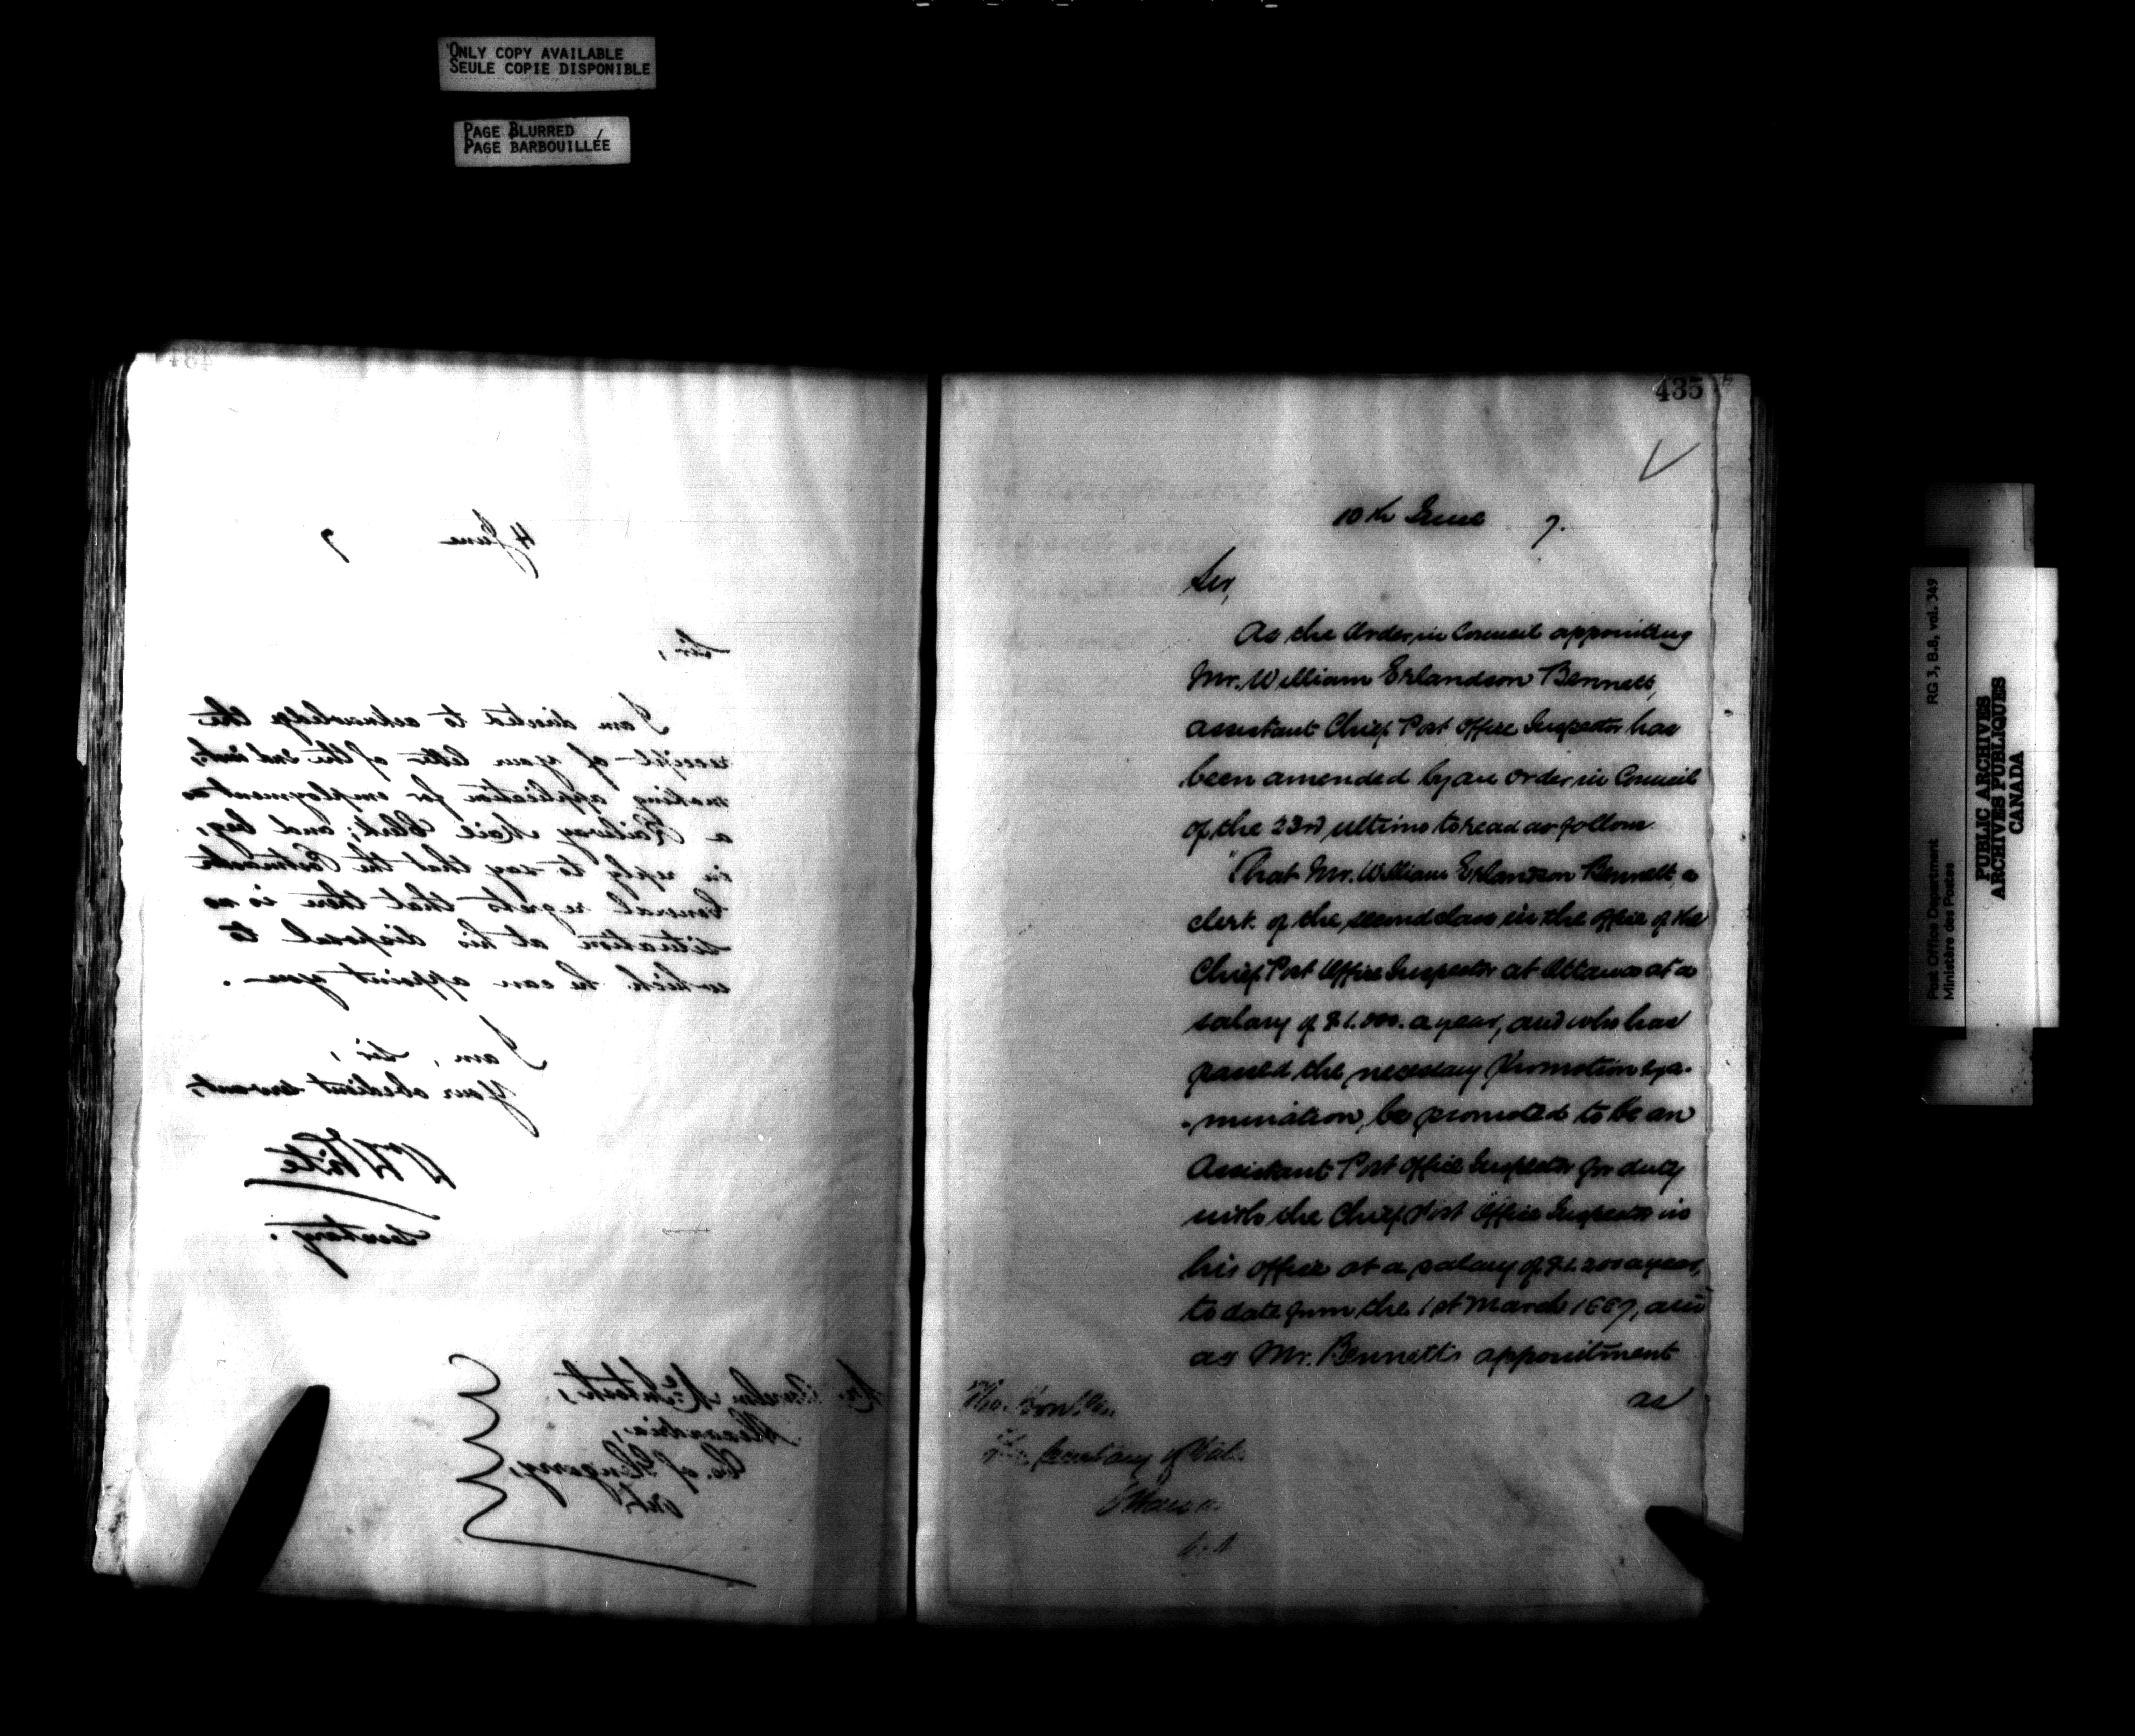 ONLY COPY AVAILABLE
SEULE COPIE DISPONIBLE
PAGE BLURRED
PAGE BARBOUILLÉE
434
4 June 7
Sir,
I am directed to acknowledge the
receipt of your letter of the 2nd inst,
making application for employment as
a Railway Mail Clerk; and beg,
in reply to say that the Postmaster
General regrets that there is no
situation at his disposal to
which he can appoint you.
I am, Sir,
Your obedient servant,
Wm White
Secretary.
Mr. McIntosh,
Alexandria,
Co. of Glengarry,
Ont.
435
10th June 7.
Sir,
As the Order in Council appointing
Mr. William Erlandson Bennett,
assistant Chief Post Office Inspector has
been amended by an Order in Council
of the 23rd ultimo to read as follows.
"That Mr. William Erlandson Bennett, a
clerk of the second class in the office of the
Chief Post Office Inspector at Ottawa at a
salary of $1.000. a year, and who has
passed the necessary promotion exa-
-mination, be promoted to be an
Assistant Post Office Inspector for duty
with the Chief Post Office Inspector in
his office at a salary of $1.200 a year,
to date from the 1st March 1887, and
as Mr. Bennett's appointment
as
The Honble
The Secretary of State
Ottawa
RG 3, B.8, vol. 349
Post Office Department
Ministère des Postes
PUBLIC ARCHIVES
ARCHIVES PUBLIQUES
CANADA